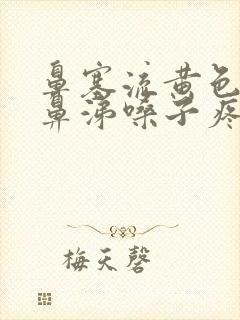 鼻塞流黄色
鼻涕嗓子疼
梅天磬